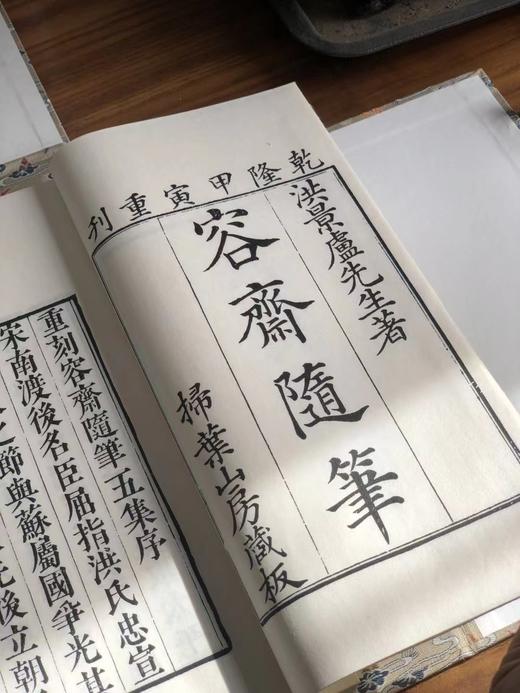 乾隆甲寅重刋
洪景盧先生著
容齋隨筆
掃葉山房藏板
重刻容齋隨筆五集序
宋南渡後名臣屈指洪氏忠宣
之節與蘇屬國爭光其
後立朝